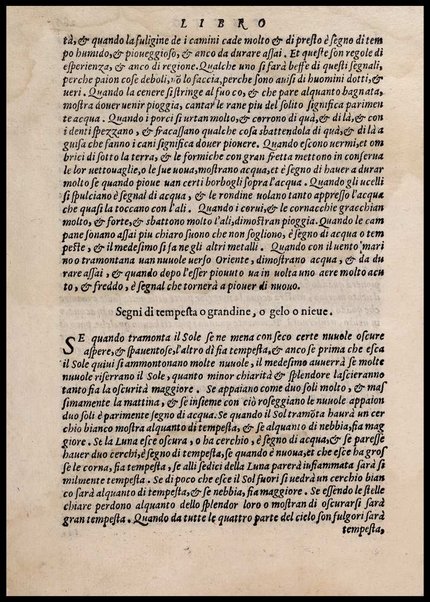 LIBRO
tà, & quando la fuligine de i camini cade molto & di presto è segno di tem
po humido, & pioueggioso, & anco da durare assai. Et queste son regole di
esperienza, & anco di regione. Qualche uno si farà beffe di questi segnali,
perche paion cose deboli, nõ lo faccia, perche sono auisi di huomini dotti, &
ueri. Quando la cenere si stringe al fuoco, & che pare alquanto bagnata,
mostra douer uenir pioggia, cantar le rane piu del solito significa parimen
te acqua. Quando i porci si urtan molto, & corrono di quà, & di là, & con
i denti spezzano, & fracassano qualche cosa sbattendola di quà, & di là a
guisa che fanno i cani significa douer piouere. Quando escono uermi, et om
brici di sotto la terra, & le formiche con gran fretta mettono in conserua
le lor uettouaglie, o le sue uoua, mostrano acqua, et è segno di hauer a durar
molto se quando pioue uan certi borbogli sopra l'acqua. Quando gli ucelli
si spulciano è segnal di acqua, & le rondine uolano tanto appresso l'acqua
che quasi la toccano con l'ali. Quando i corui, & le cornacchie gracchian
molto, & forte, & sbattono molto l'ali, dimostran pioggia. Quando le cam
pane sonano assai piu chiaro suono che non sogliono, è segno di acqua o tem
peste, & il medesimo si fa ne gli altri metalli. Quando con il uento mari
no o tramontana uan nuuole uerso Oriente, dimostrano acqua, & da du
rare assai, & quando dopo l'esser piouuto ua in uolta uno aere molto acu
to, & freddo, è segnal che tornerà a piouer di nuouo.
Segni di tempesta o grandine, o gelo o nieue.
SE quando tramonta il Sole se ne mena con seco certe nuuole oscure
aspere, & spauentose, l'altro dì fia tempesta, & anco se prima che esca
il Sole quiui si ammontonano molte nuuole, il medesimo auuerrà se molte
nuuole riserrano il Sole, quanto minor chiarità & splendore lascieranno
tanto fia la oscurità maggiore. Se appaiano come duo soli molto, & mas
simamente la mattina, & se insieme con ciò rosseggiano le nuuole appaion
duo soli è parimente segno di acqua. Se quando il Sol tramõta haurà un cer
chio bianco mostra alquanto di tempesta, & se alquanto di nebbia, fia mag
giore. Se la Luna esce oscura, o ha cerchio, è segno di acqua, & se paresse
hauer duo cerchi, è segno di tempesta, se quando è nuoua, et che esce ha gros
se le corna, fia tempesta, se alli sedici della Luna parerà infiammata sarà si
milmente tempesta. Se di poco che esce il Sol fuori si uedrà un cerchio bian
co sarà alquanto di tempesta, & se nebbia, fia maggiore. Se essendo le stelle
chiare perdono alquanto dello splendor loro o mostran di oscurarsi sarà
gran tempesta. Quando da tutte le quattro parte del cielo son fulgori sarà
tempesta,